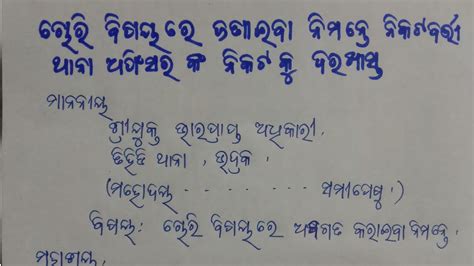 ଚୋରି ବିଷୟରେ ଜଣାଇବା ନିମନ୍ତେ ନିକଟବର୍ତ୍ତୀ
ଥାନା ଅଫିସର ଙ୍କ ନିକଟ କୁ ଦରଖାସ୍ତ
ମାନନୀୟ
ଶ୍ରୀଯୁକ୍ତ ଭାରପ୍ରାପ୍ତ ଅଧିକାରୀ,
ତିହିଡି ଥାନା, ଭଦ୍ରକ.
(ମହୋଦୟ . . . . . . . . . ସମୀପେଷୁ.)
ବିଷୟ: ଚୋରି ବିଷୟରେ ଅବଗତ କରାଇବା ନିମନ୍ତେ.
ମହାଶୟ,